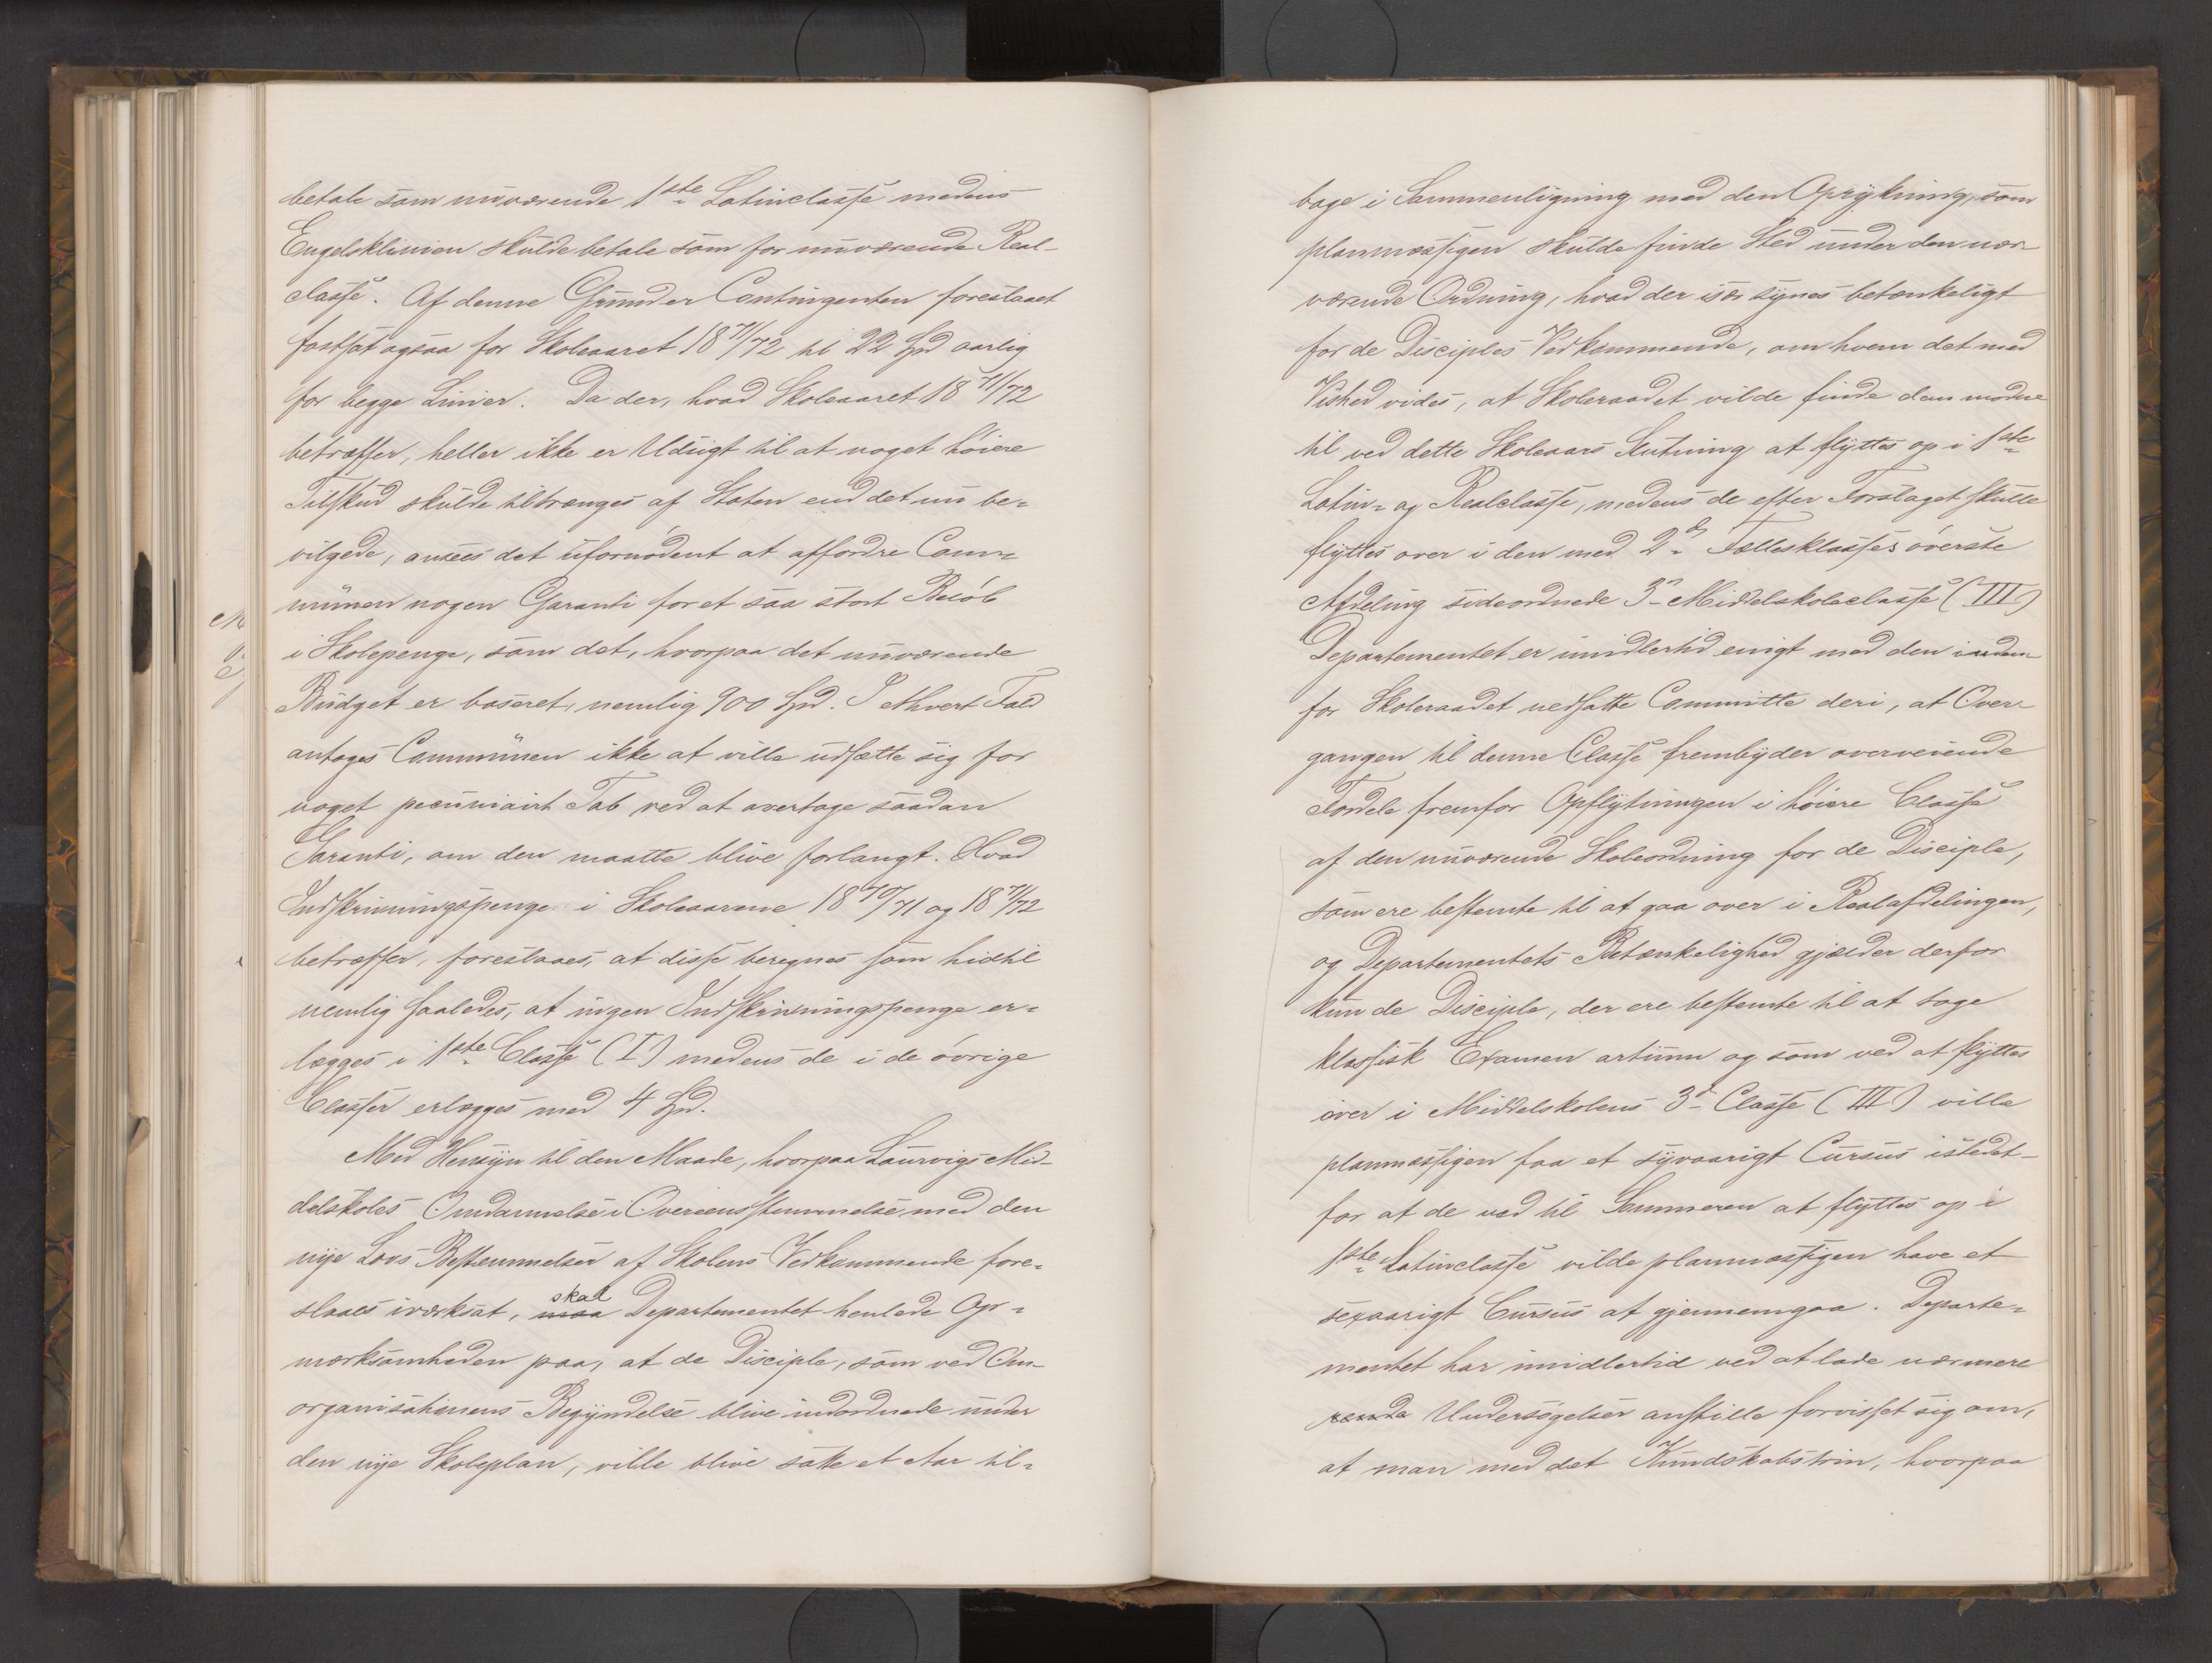 betale som nuværende 1ste Latinclasse medens
Engelsklinien skulde betale som for nuværende Real-
classe. Af denne Grund er Contingenten foreslaaet
fastsat ogsaa for Skoleaaret 1871/72 til 22 Spd aarlig
for begge Linier. Da der, hvad Skoleaaret 1871/72
betræffer, heller ikke er Udsigt til at noget høiere
Tilskud skulde tiltrænges af Staten end det nu be-
vilgede, ansees det ufornødent at affordre Com-
munen nogen Garanti for et saa stort Beløb
i Skolepenge, som det, hvorpaa det nuværende
Budget er baseret, nemlig 900 Spd. I ethvert Fald
antages Communen ikke at ville udsætte sig for
noget pecuniairt Tab ved at overtage saadan
Garanti, om den maatte blive forlangt. Hvad
Indskrivningspenge i Skoleaarene 1870/71 og 1871/72
betræffer, foreslaaes, at disse beregnes som hidtil
nemlig saaledes, at ingen Indskrivningspenge er-
lægges i 1ste Classe (I) medens de i de øvrige
Classer erlægges med 4 Spd.
Med Hensyn til den Maade, hvorpaa Laurvigs Mid-
delskoles Omdannelse i Overeensstemmelse med den
nye Lovs Bestemmelser af Skolens Vedkommende fore-
slaaes iværksat, maa skal Departementet henlede Op-
mærksomheden paa, at de Disciple, som ved Om-
organisationens Begyndelse blive indordnede under
den nye Skoleplan, ville blive satte et Aar til-
bage i Sammenligning med den Oprykning, som
planmæssigen skulde finde Sted under den nu-
værende Ordning, hvad der især synes betænkeligt
for de Disciples Vedkommende, om hvem det med
Vished vides, at Skoleraadet vilde finde dem modne
til ved dette Skoleaars Slutning at flyttes op i 1ste
Latin- og Realclasse, medens de efter Forslaget skulle
flyttes over i den med 2den Fællesklasses øverste
Afdeling sideordnede 3die Middelskoleclasse (III)
Departementet er imidlertid enigt med den inden
for Skoleraadet nedsatte Committe deri, at Over-
gangen til denne Classe frembyder overveiende
Fordele fremfor Opflytningen i høiere Classe
af den nuværende Skoleordning for de Disciple,
som ere bestemte til at gaa over i Realafdelingen,
og Departementets Betænkelighed gjælder derfor
kun de Disciple, der ere bestemte til at tage
klassisk Examen artium og som ved at flyttes
over i Middelskolens 3die Classe (III) ville
planmæssigen faa et syvaarigt Cursus istedet-
for at de ved til Sommeren at flyttes op i
1ste Latinclasse vilde planmæssigen have et
sexaarigt Cursus at gjennemgaa. Departe-
mentet har imidlertid ved at lade nærmere
Undersøgelser anstille forvisset sig om,
at man med det Kundskabstrin, hvorpaa